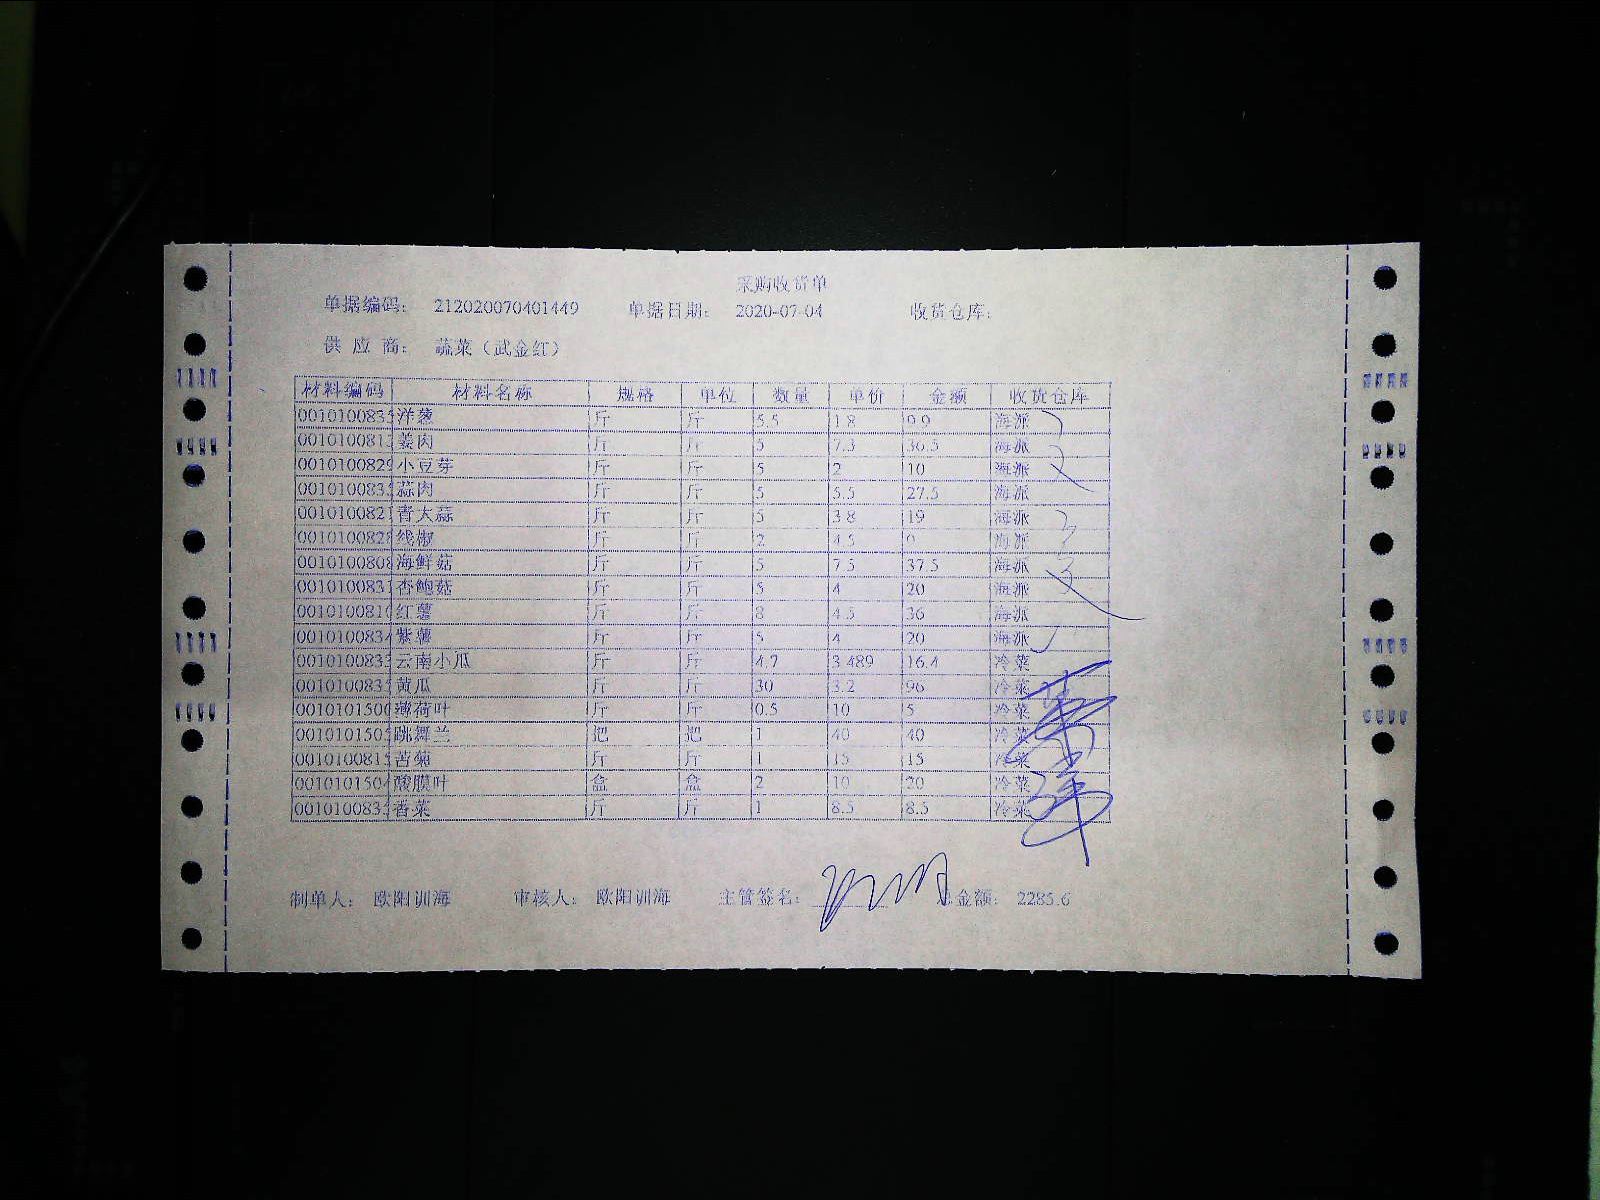 采购收货单
单据编码: 212020070401449 单据日期: 2020-07-04 收货仓库:
供应商: 蔬菜（武金红）
材料编码 材料名称 规格 单位 数量 单价 金额 收货仓库
001010083 洋葱 斤 斤 5.5 1.8 9.9 海派
001010081 姜肉 斤 斤 5 7.3 36.5 海派
001010082 小豆芽 斤 斤 5 2 10 海派
001010083 蒜肉 斤 斤 5 5.5 27.5 海派
001010082 青大蒜 斤 斤 5 3.8 19 海派
001010082 线椒 斤 斤 2 4.5 9 海派
001010080 海鲜菇 斤 斤 5 7.5 37.5 海派
001010083 杏鲍菇 斤 斤 5 4 20 海派
001010081 红薯 斤 斤 8 4.5 36 海派
001010083 紫薯 斤 斤 5 4 20 海派
001010083 云南小瓜 斤 斤 4.7 3.489 16.4 冷菜
001010083 黄瓜 斤 斤 30 3.2 96 冷菜
001010150 薄荷叶 斤 斤 0.5 10 5 冷菜
001010150 跳舞兰 把 把 1 40 40 冷菜
001010081 苦菊 斤 斤 1 15 15 冷菜
001010150 酸膜叶 盒 盒 2 10 20 冷菜
001010083 香菜 斤 斤 1 8.5 8.5 冷菜
制单人: 欧阳训海 审核人: 欧阳训海 主管签名: 总金额: 2285.6